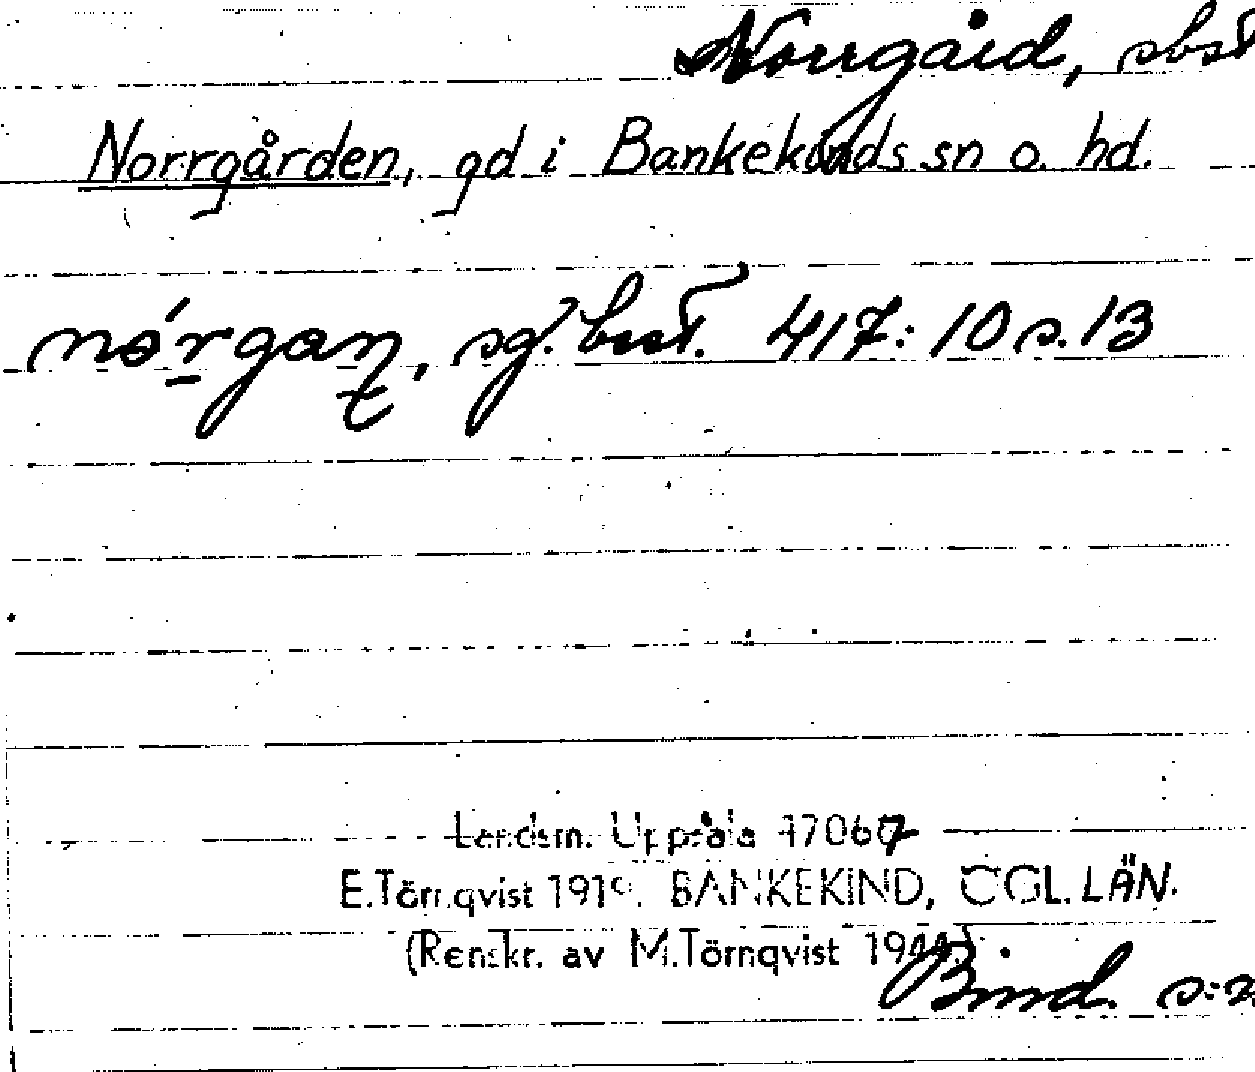 Norrgård, sbst
Norrgården, gd i Bankekinds sn o. hd.
nórgaɳ, sg. best. 417:10 s. 13
Landsm. Uppsala 17067
E. Törnqvist 1919. BANKEKIND, ÖGL. LÄN.
(Renskr. av M. Törnqvist 1944)